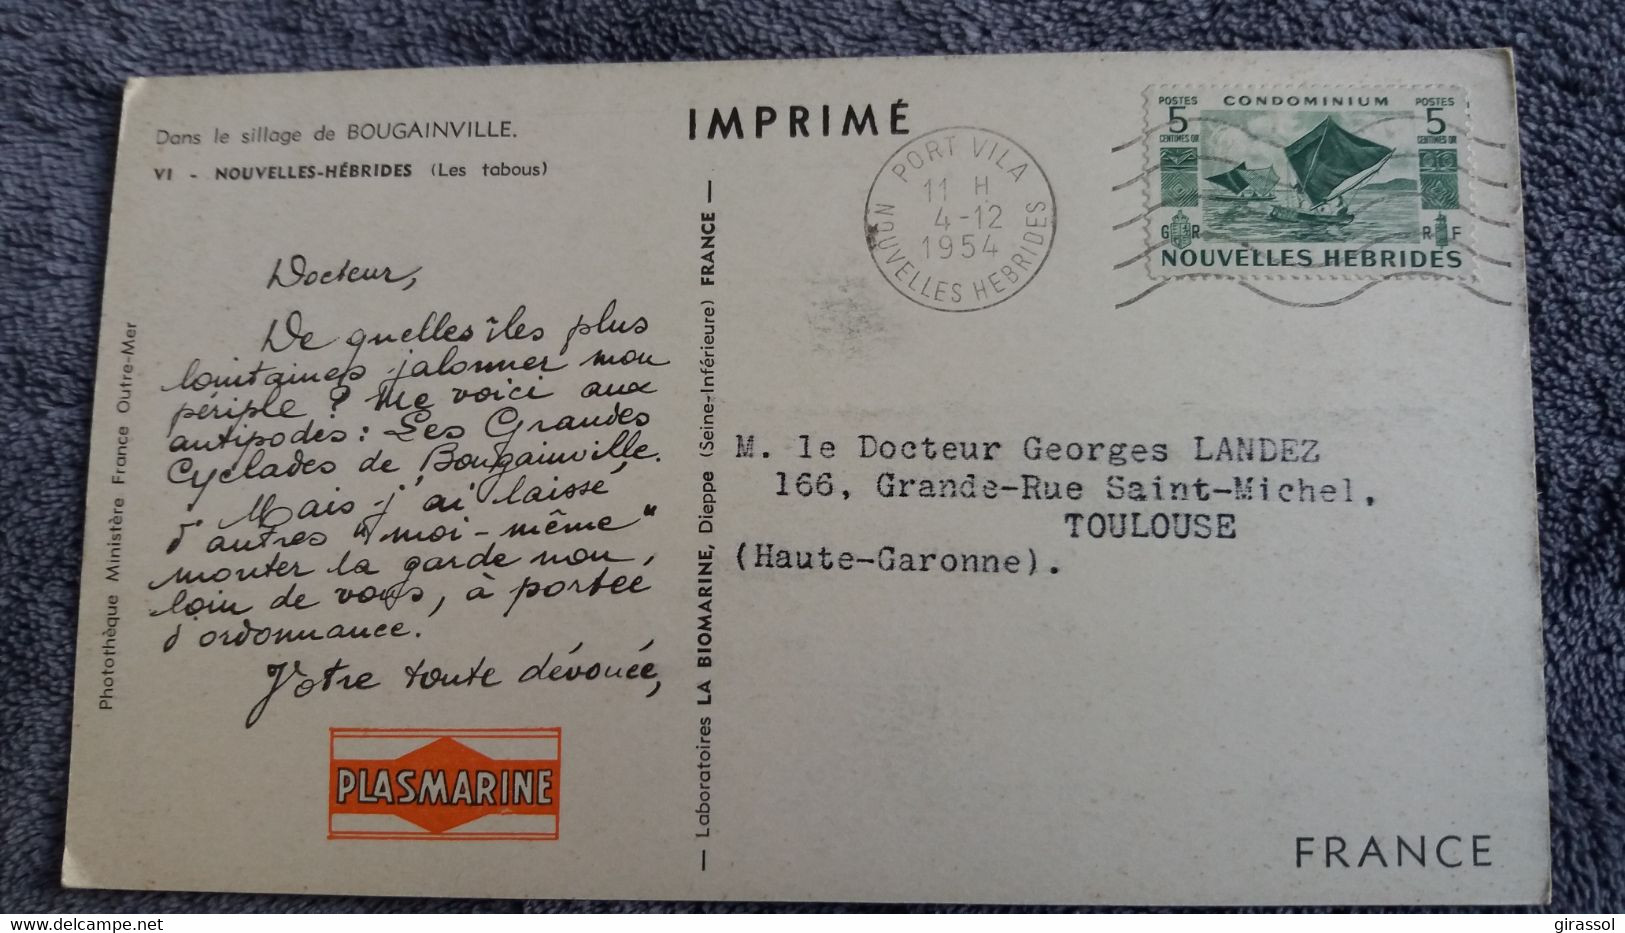 Dans le sillage de BOUGAINVILLE.
VI - NOUVELLES-HÉBRIDES (Les tabous)
Docteur,
De quelles îles plus
lointaines jalonner mon
périple ? Me voici aux
antipodes : Les Grandes
Cyclades de Bougainville.
Mais j'ai laissé
d'autres "moi-même"
monter la garde non
loin de vous, à portée
d'ordonnance.
Votre toute dévouée,
PLASMARINE
Photothèque Ministère France Outre-Mer
— Laboratoires LA BIOMARINE, Dieppe (Seine-Inférieure) FRANCE —
IMPRIMÉ
PORT VILA
11 H
4-12
1954
NOUVELLES HEBRIDES
POSTES CONDOMINIUM POSTES
5 5
CENTIMES OR CENTIMES OR
G R R F
NOUVELLES HEBRIDES
M. le Docteur Georges LANDEZ
166, Grande-Rue Saint-Michel,
TOULOUSE
(Haute-Garonne).
FRANCE
www.delcampe.net
girassol